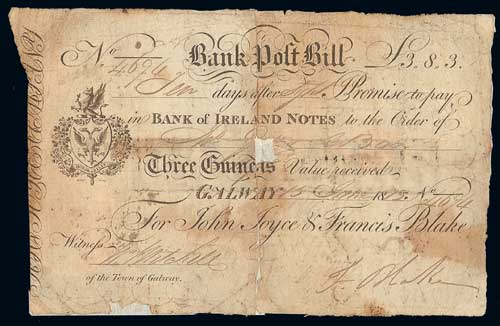 No 4694 Bank Post Bill £3.8.3.
Ten days after Sight I Promise to pay
in BANK OF IRELAND NOTES to the Order of
Three Guineas Value received
GALWAY 15 June No 4694
For John Joyce & Francis Blake
Witness
of the Town of Galway.
F. Blake